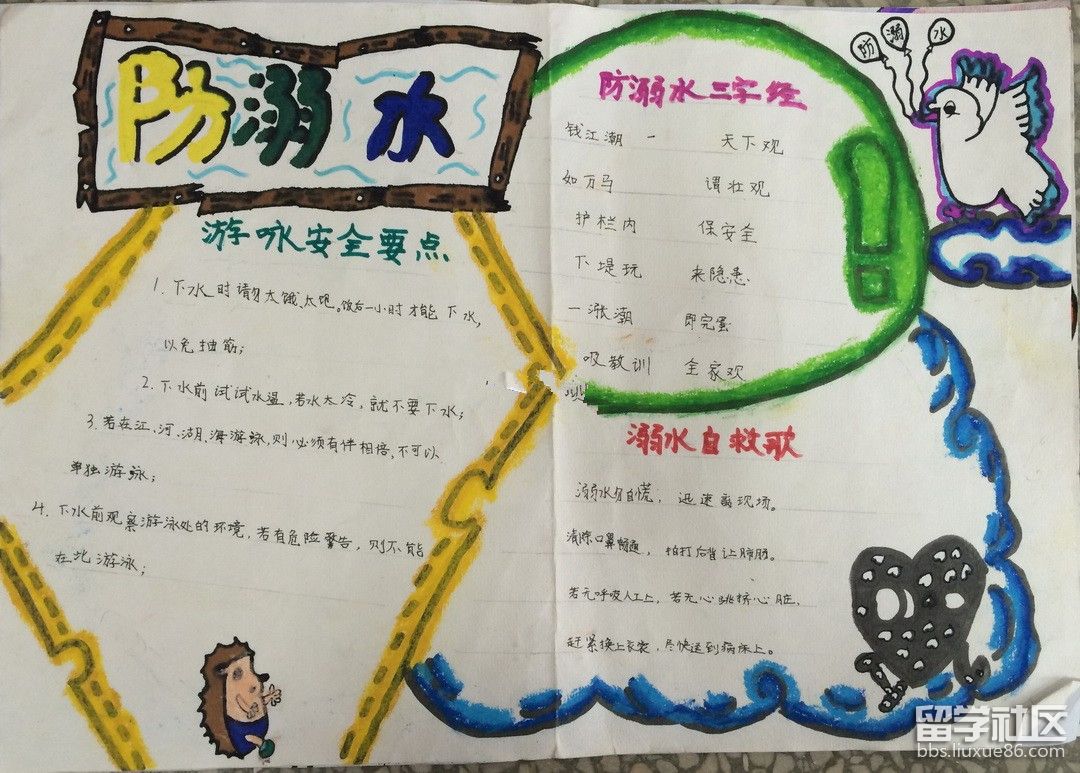 防溺水
游咏安全要点
1. 下水时请勿太饿、太饱。饭后一小时才能下水,
以免抽筋;
2. 下水前试试水温,若水太冷,就不要下水;
3. 若在江、河、湖、海游咏,则必须有伴相倍,不可以
单独游咏;
4. 下水前观察游泳处的环境,若有危险警告,则不能
在北游泳;
防溺水三字经
钱江潮一 天下观
如万马 谓壮观
护栏内 保安全
下堤玩 来隐患
一涨潮 即完蛋
吸教训 全家欢
溺水自救歌
溺水勿自慌, 迅速离现场。
清除口鼻畅通, 拍打后背让肺
若无呼吸人工上, 若无心跳挤心脏、
赶紧换上衣裳, 尽快送到病床上。
防溺水
留学社区
bbs.liuxue86.com